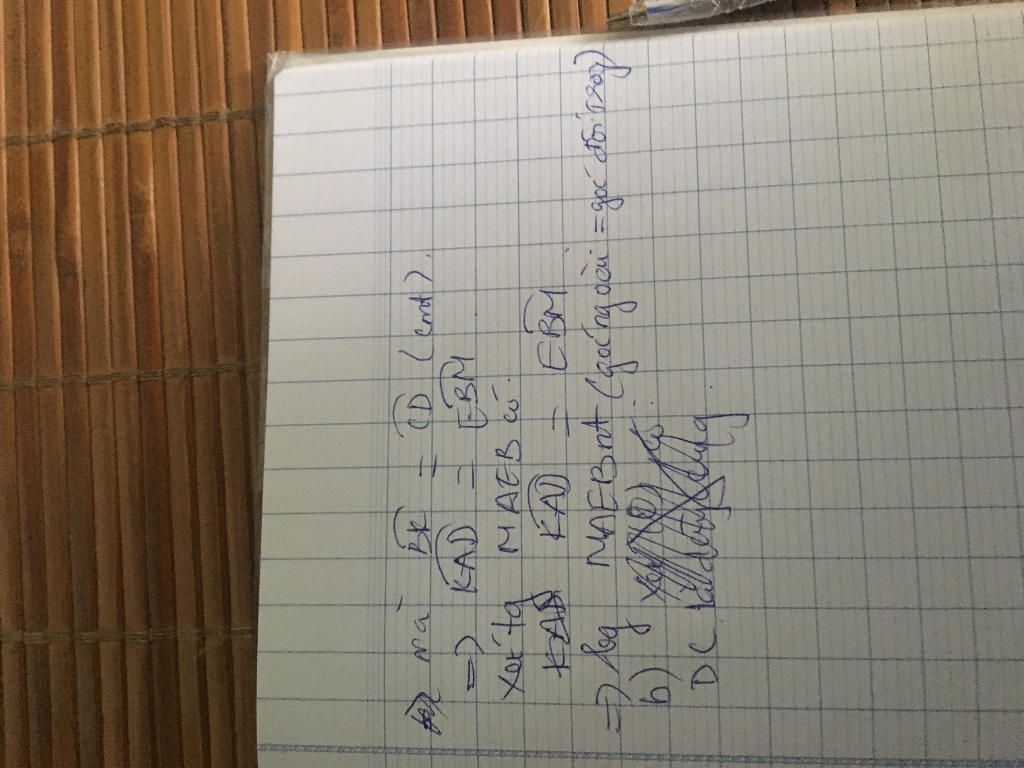 mà BK = CD (cmt).
=> KAD = EBM
Xét tg MAEB có:
KAD = EBM
=> tg MAEB nt (góc ngoài = góc đối trong)
b)
DC